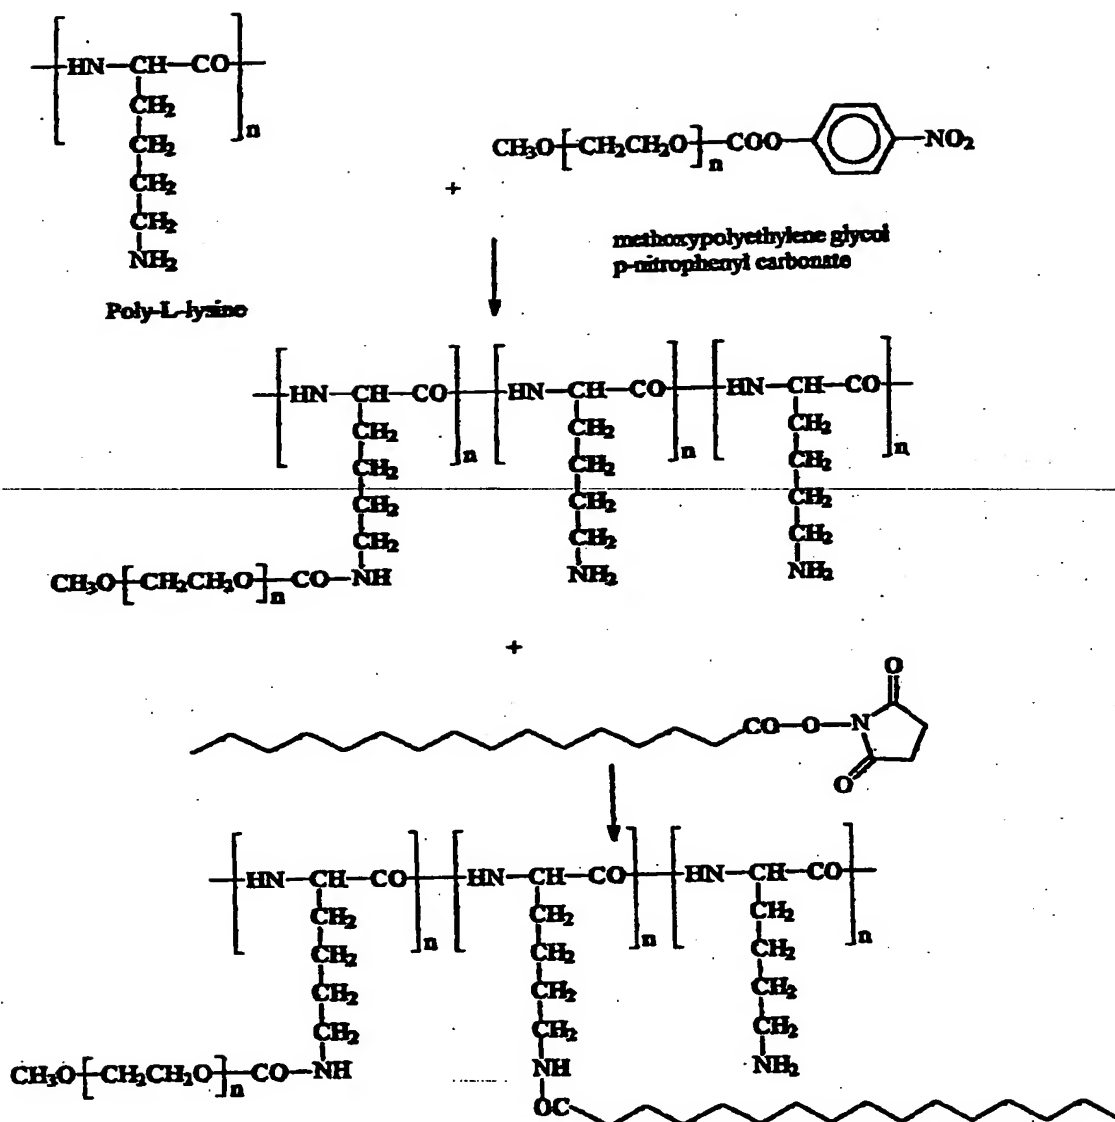 HN—CH—CO
n
CH2
CH2
CH2
CH2
NH2
Poly-L-lysine
+
CH3O—CH2CH2O—n—COO—NO2
methoxypolyethylene glycol
p-nitrophenyl carbonate
HN—CH—CO n HN—CH—CO n HN—CH—CO n
CH2 CH2 CH2
CH2 CH2 CH2
CH2 CH2 CH2
CH2 CH2 CH2
CH3O—CH2CH2O—n—CO—NH NH2 NH2
+
O
CO—O—N
O
HN—CH—CO n HN—CH—CO n HN—CH—CO n
CH2 CH2 CH2
CH2 CH2 CH2
CH2 CH2 CH2
CH2 CH2 CH2
CH3O—CH2CH2O—n—CO—NH NH NH2
OC